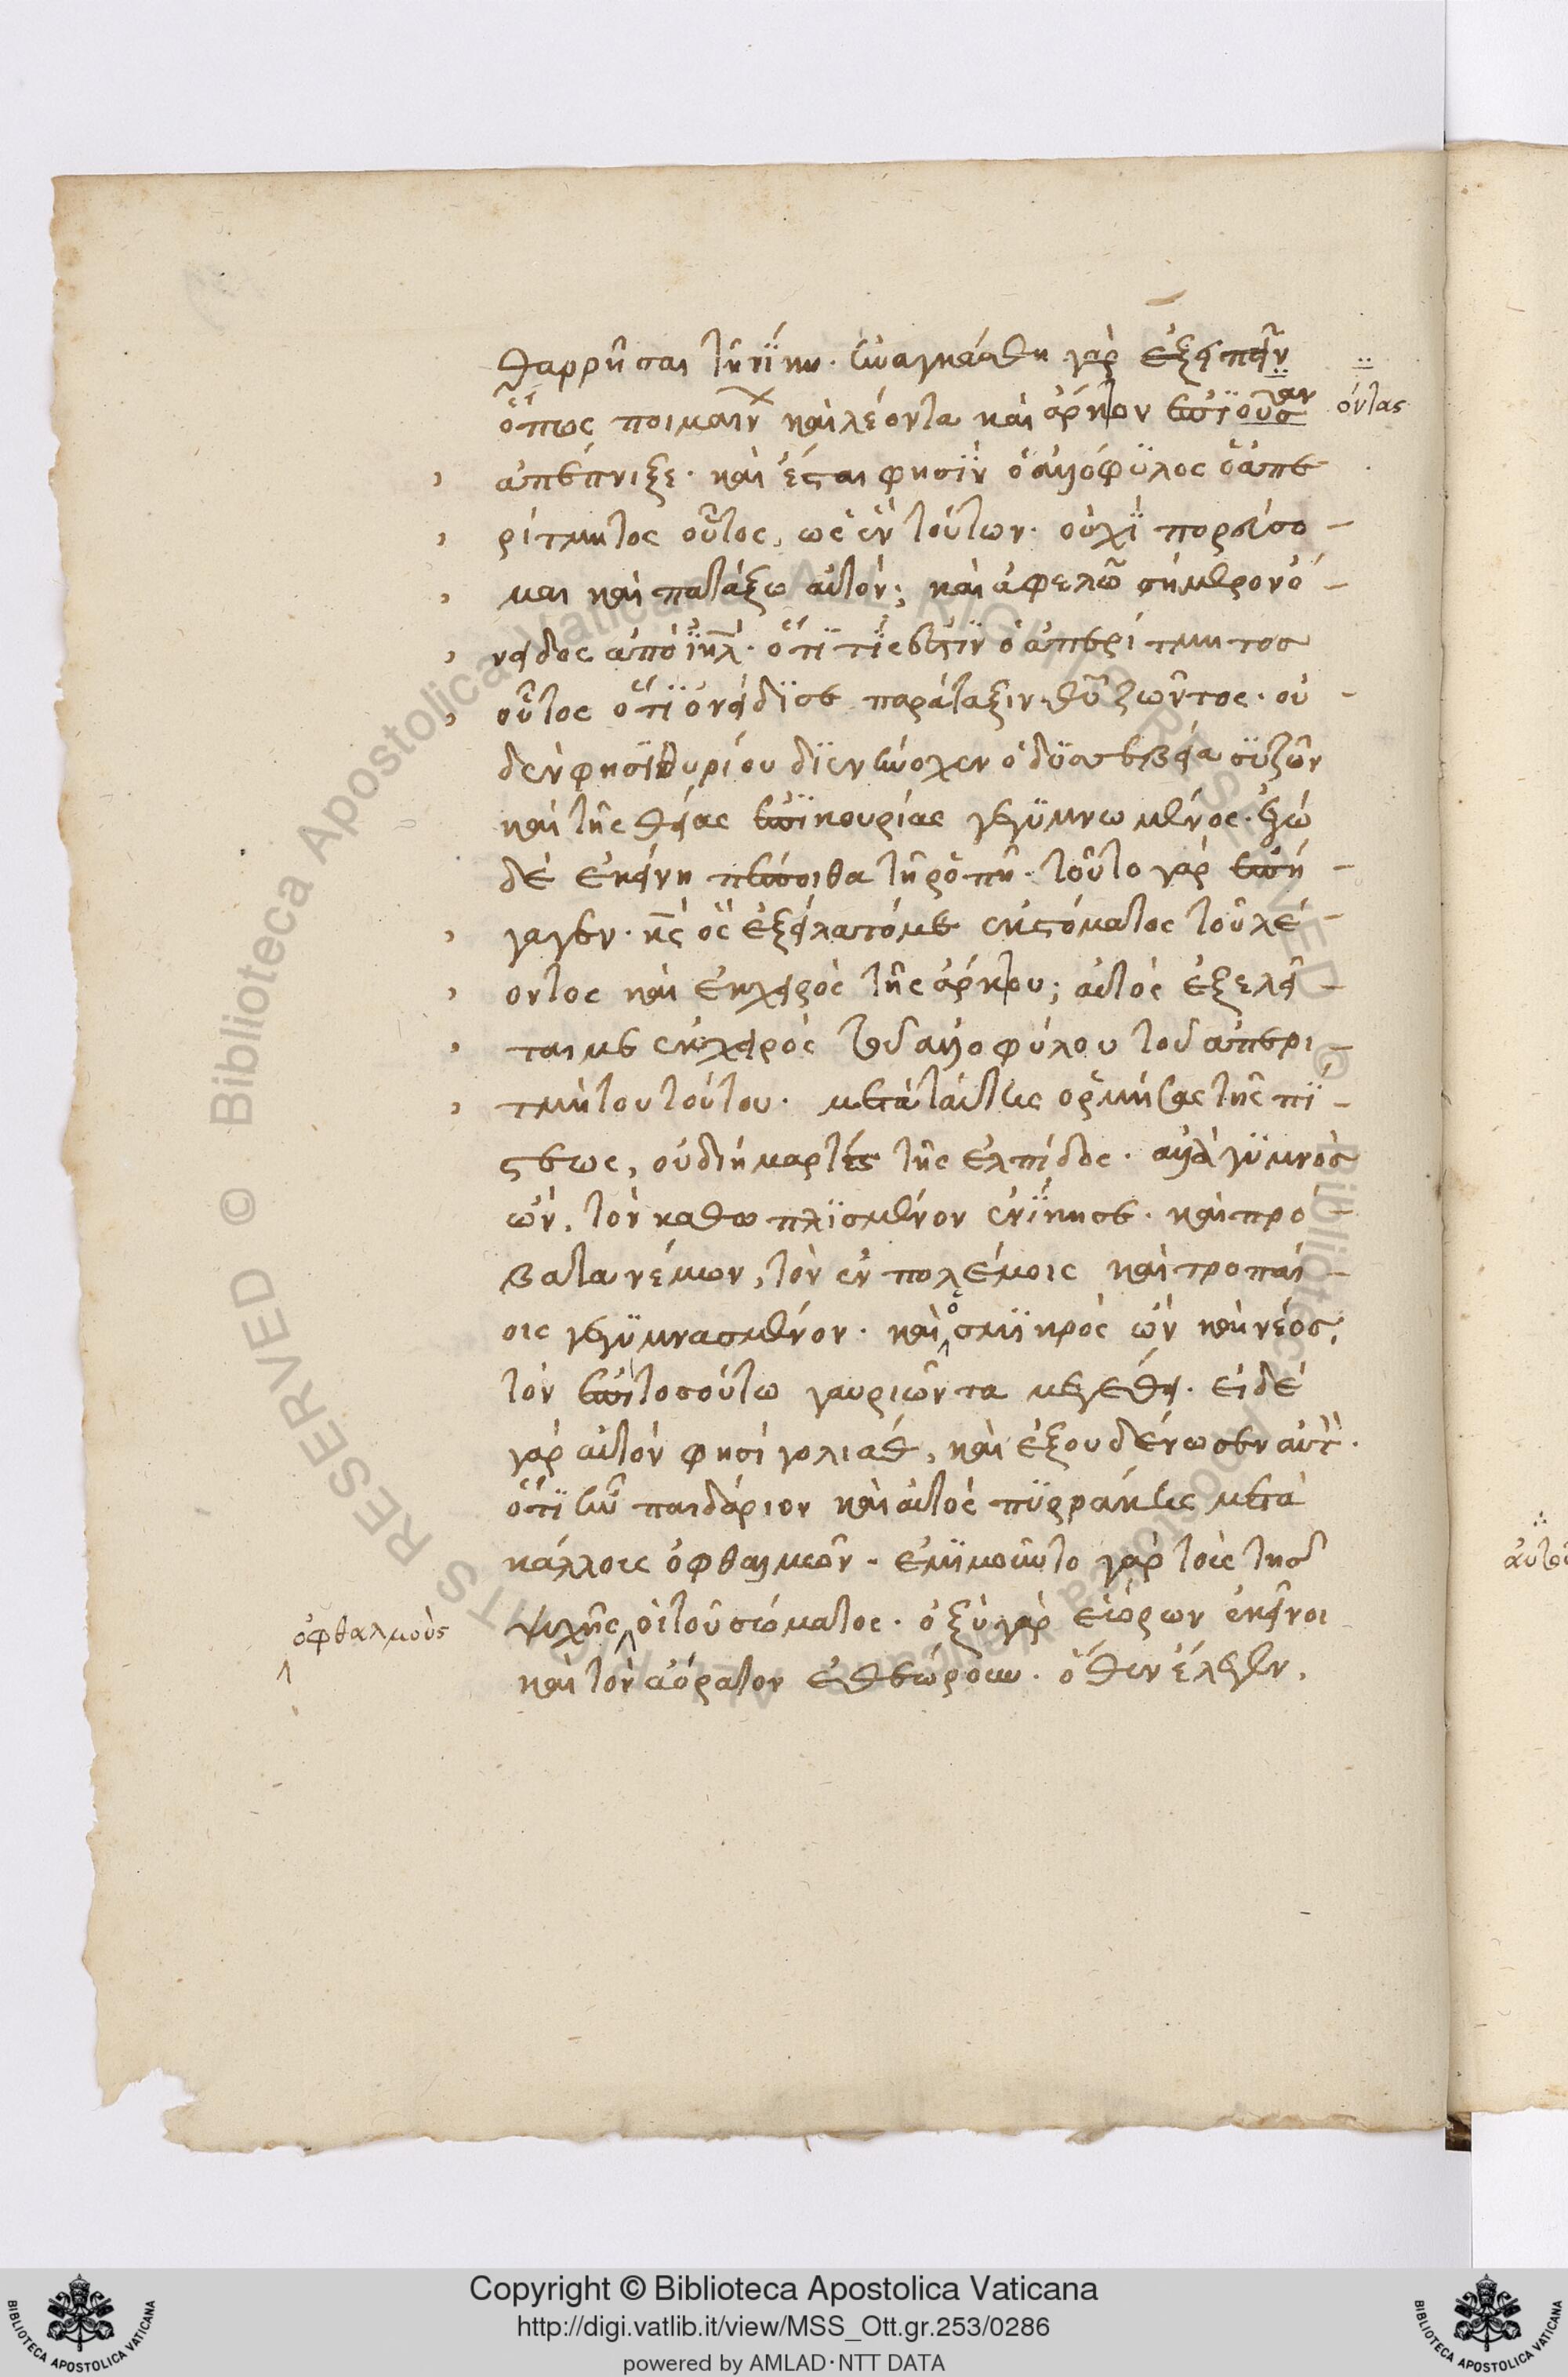 θαρρῆσαι τὴν νίκην. ἠναγκάσθη γὰρ ἐξειπεῖν
ὅπως ποιμαίν καὶ λέοντα καὶ ἄρκτον ἐπϊοῦσαν ὄντας
ἀπέπνιξε. καὶ ἔσται φησῒν ὁ ἀλλόφϋλος ὁ ἀπε
ρίτμητος οὗτος, ὡς ἓν τούτων. οὐχῒ πορεύσο-
μαι καὶ πατάξω αὐτόν; καὶ ἀφελῶ σήμερον ὀ-
νειδος ἀπὸ ϊηλ. ὅτϊ τίς ἐστϊν ὁ ἀπερίτμητος
οὗτος ὅτϊ ὀνείδϊσε παράταξιν θῦ ζῶντος. οὐ-
δὲν φησῒ θηρίου διενήνοχεν ὁ δϋσσεβεία σϋζῶν
καὶ τῆς θείας ἐπϊκουρίας γεγϋμνωμένος. ἐγὼ
δὲ ἐκείνη πέποιθα τῇ ῥοπῇ. τοῦτο γὰρ ἐπή-
γαγεν. κς ὃς ἐξείλατό με ἐκ στόματος τοῦ λέ-
οντος καὶ ἐκ χειρὸς τῆς ἄρκτου; αὐτὸς ἐξελεῖ-
ταί με ἐκ χειρὸς τοῦ ἀλλοφύλου τοῦ ἀπερι-
τμήτου τούτου. μετὰ ταύτης ὁρμήσας τῆς πί-
στεως, οὐ διήμαρτε τῆς ἐλπίδος. ἀλλὰ γϋμνὸς
ὢν, τὸν καθωπλϊσμένον ἐνίκησε. καὶ πρό-
βατα νέμων, τὸν ἐν πολέμοις καὶ τροπαί-
οις γεγϋμνασμένον. καὶ ὁ σμϊκρὸς ὢν καὶ νέος,
τὸν ἐπὶ τοσούτω γαυριῶντα μεγέθει. εἶδε
γὰρ αὐτὸν φησὶ γολιάθ, καὶ ἐξουδένωσεν αὐτ.
ὅτϊ ἦν παιδάριον καὶ αὐτὸς πϋρράκης μετὰ
κάλλοις ὀφθαλμῶν. ἐμϊμοῦντο γὰρ τοὶς τῆς
ὀφθαλμοὺς ψυχῆς οἱ τοῦ σώματος. ὀξὺ γὰρ ἑώρων ἐκεῖνοι
καὶ τὸν ἀόρατον ἐθεώρουν. ὅθεν ἔλεγεν,
Copyright © Biblioteca Apostolica Vaticana
http://digi.vatlib.it/view/MSS_Ott.gr.253/0286
powered by AMLAD·NTT DATA